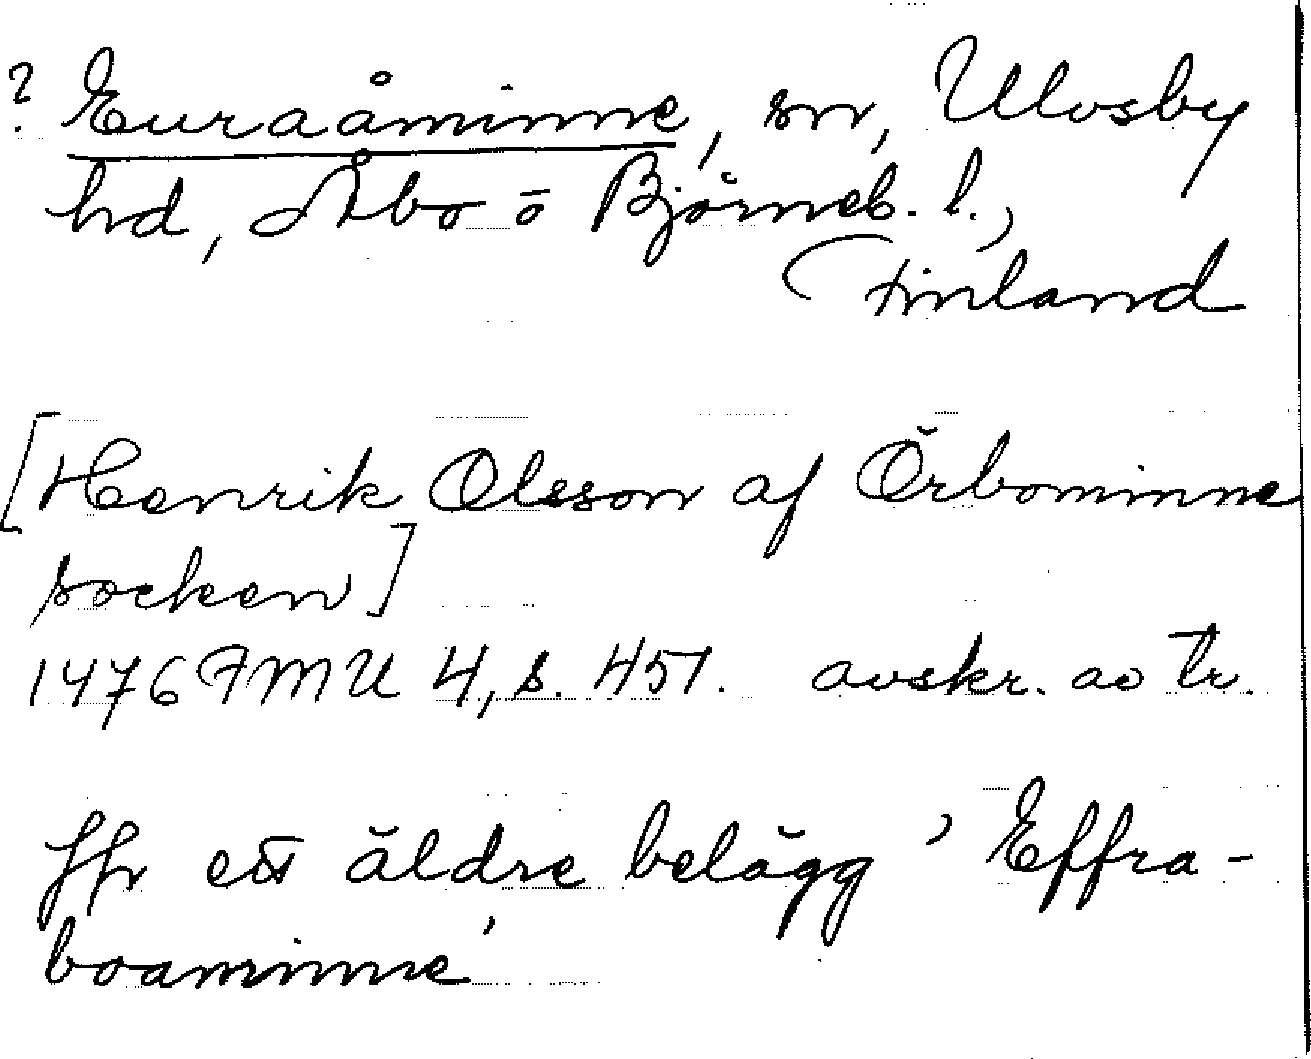 ? Euraåminne, sn, Ulvsby
hd, Åbo o Björneb. l.,
Finland
[Henrik Olsson af Örbominne
socken]
1476 FMU 4, s. 451. avskr. av tr.
Jfr ett äldre belägg 'Effra-
boaminne'